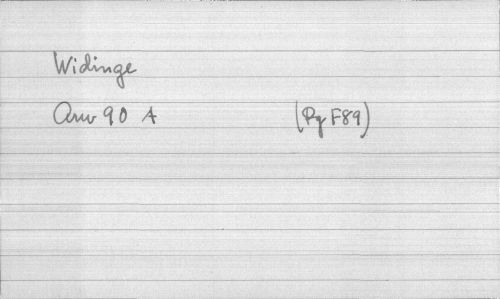 Widinge
Anv 90 A (Rg F89)